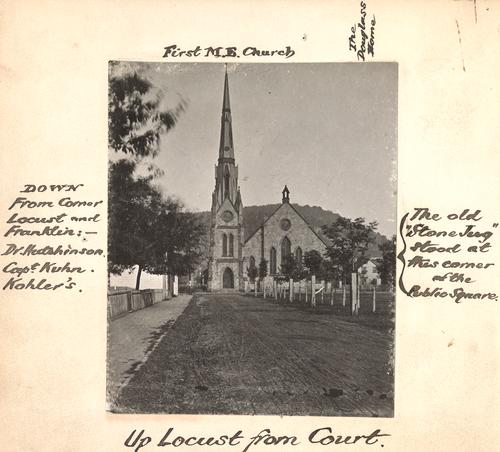 First M.E. Church
The
Douglass
Home
DOWN
From Corner
Locust and
Franklin:—
Dr. Hutchinson.
Capt. Kuhn.
Kohler's.
The old
"Stone Jug"
stood at
this corner
of the
Public Square.
Up Locust from Court.